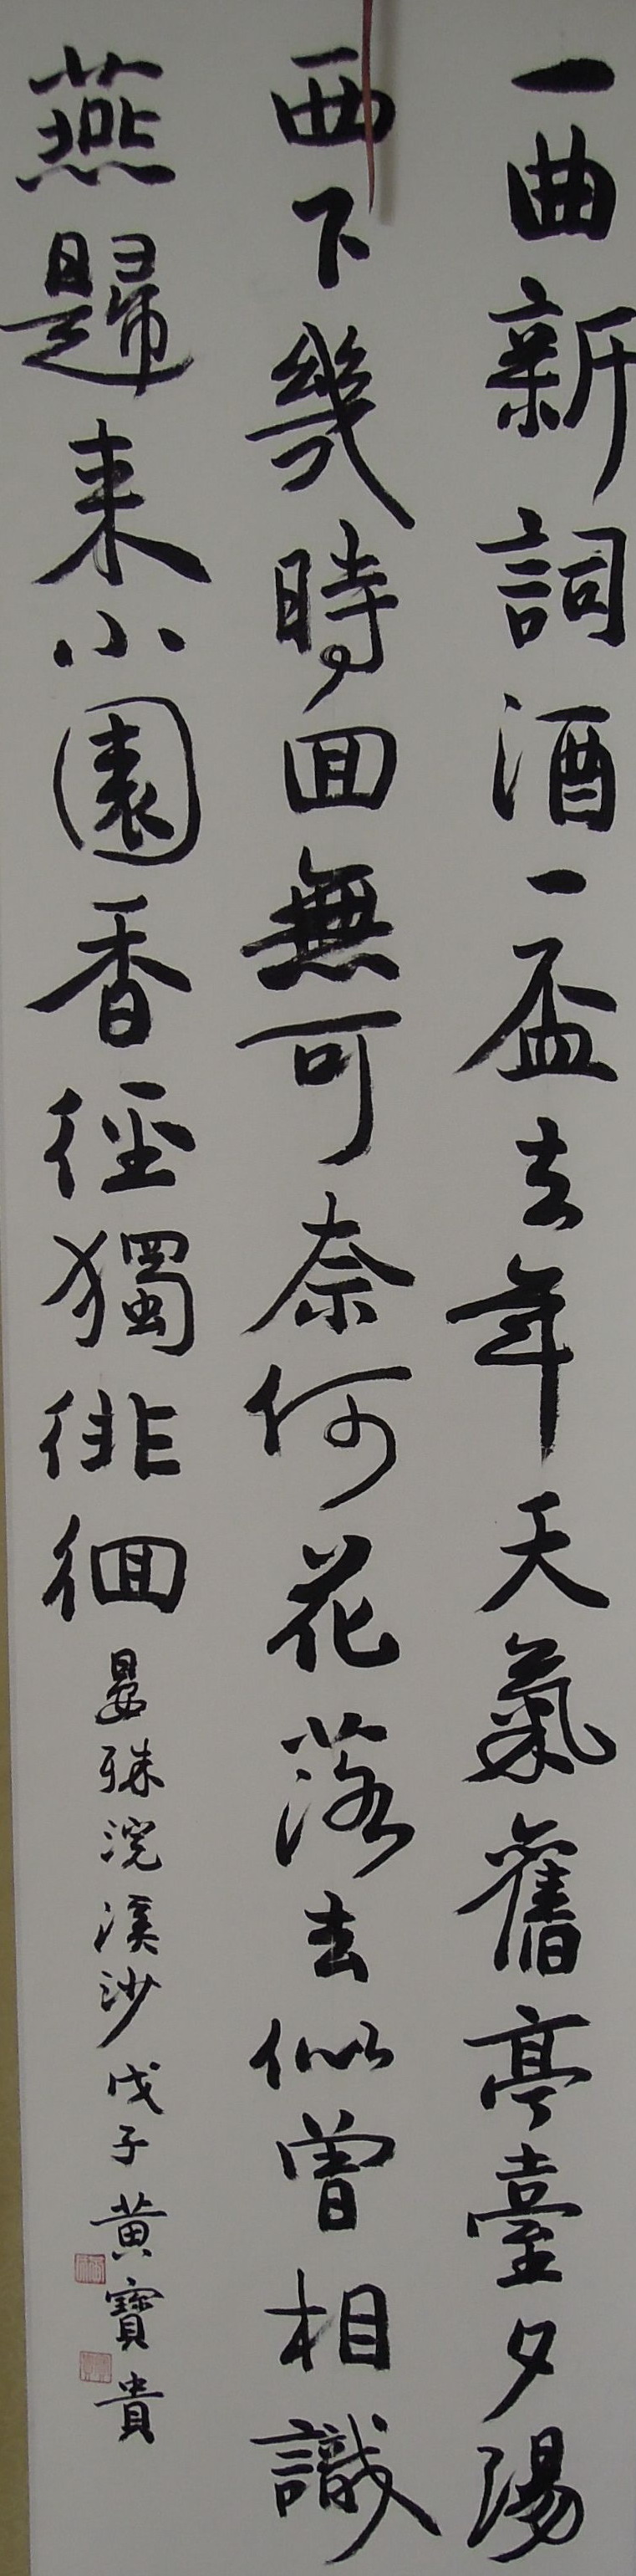 一曲新詞酒一盃去年天氣舊亭臺夕陽
西下幾時回無可奈何花落去似曾相識
燕歸来小園香徑獨徘徊晏殊浣溪沙戊子黄寶貴